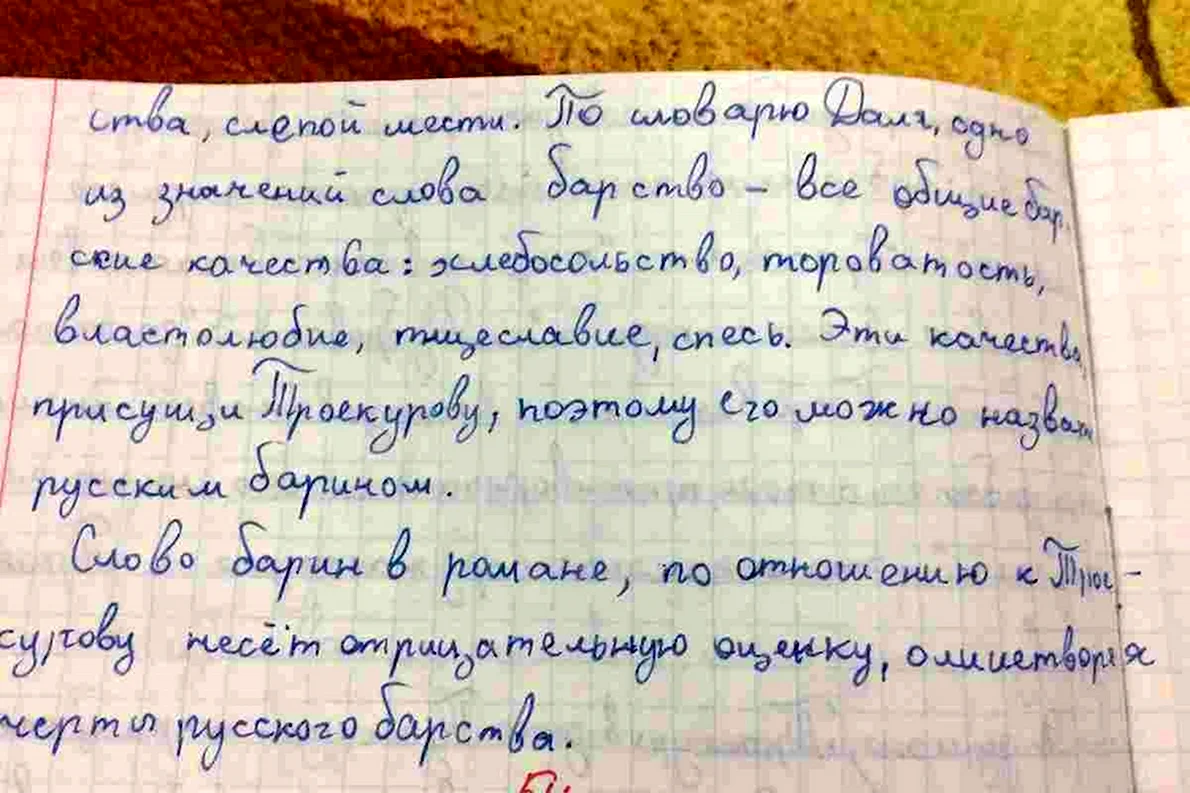 ства, слепой мести. По словарю Даля, одно
из значений слова барство – все общие бар
ские качества: хлебосольство, тороватость,
властолюбие, тщеславие, спесь. Эти качества
присущи Троекурову, поэтому его можно назвать
русским барином.
Слово барин в романе, по отношению к Трое-
курову несёт отрицательную оценку, олицетворяя
черты русского барства.